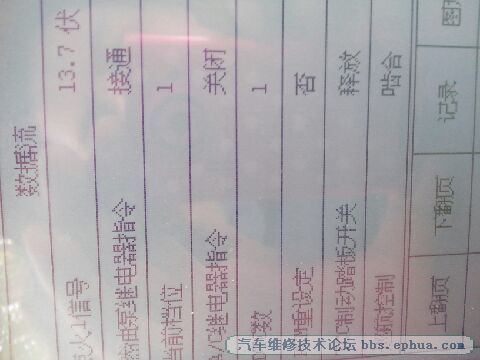 数据流
火1信号 13.7 伏
燃油泵继电器指令 接通
当前档位 1
A/C继电器指令 关闭
数 1
重设定 否
C制动踏板开关 释放
控制 啮合
上翻页 下翻页 记录 图
汽车维修技术论坛 bbs.ephua.com